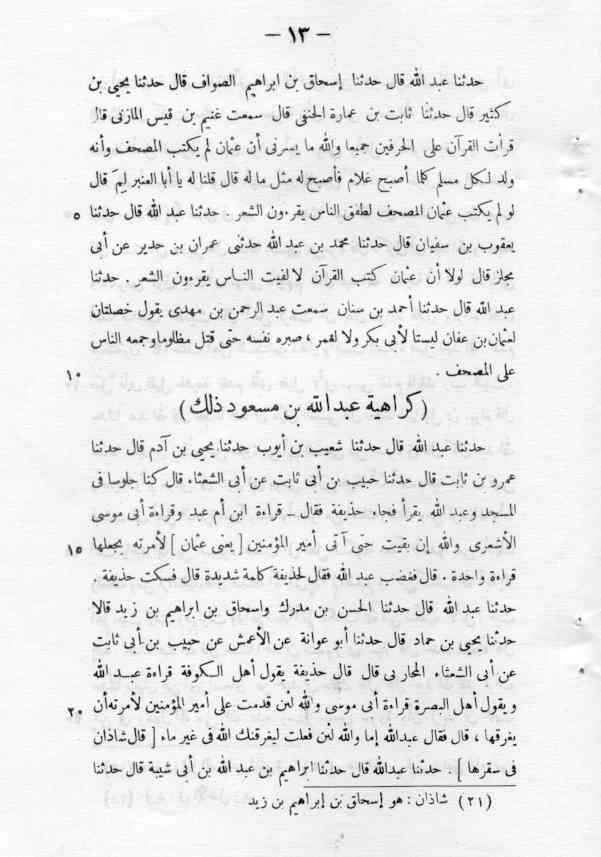 — ١٣ —
حدثنا عبد الله قال حدثنا إسحاق بن ابراهيم الصواف قال حدثنا يحيى بن
كثير قال حدثنا ثابت بن عمارة الحنفى قال سمعت غنيم بن قيس المازنى قال
قرأت القرآن على الحرفين جميعا والله ما يسرنى أن عثمان لم يكتب المصحف وأنه
ولد لكل مسلم كلما أصبح غلام فأصبح له مثل ما له قال قلنا له يا أبا العنبر لم قال
لو لم يكتب عثمان المصحف لطفق الناس يقرءون الشعر . حدثنا عبد الله قال حدثنا ٥
يعقوب بن سفيان قال حدثنا محمد بن عبد الله حدثنى عمران بن حدير عن أبى
مجلز قال لولا أن عثمان كتب القرآن لالفيت النـاس يقرءون الشعر . حدثنا
عبد الله قال حدثنا أحمد بن سنان سمعت عبد الرحمن بن مهدى يقول خصلتان
لعثمان بن عفان ليستا لأبى بكر ولا لعمر ، صبره نفسه حتى قتل مظلوما وجمعه الناس
على المصحف . ١٠
( كراهية عبد الله بن مسعود ذلك )
حدثنا عبد الله قال حدثنا شعيب بن أيوب حدثنا يحيى بن آدم قال حدثنا
عمرو بن ثابت قال حدثنا حبيب بن أبى ثابت عن أبى الشعثاء قال كنا جلوسا فى
المسجد وعبد الله يقرأ فجاء حذيفة فقال ـ قراءة ابن أم عبد وقراءة أبى موسى
الأشعرى والله إن بقيت حتى آتى أمير المؤمنين [ يعنى عثمان ] لأمرته بجعلها ١٥
قراءة واحدة . قال فغضب عبد الله فقال لحذيفة كلمة شديدة قال فسكت حذيفة .
حدثنا عبد الله قال حدثنا الحسن بن مدرك واسحاق بن ابراهيم بن زيد قالا
حدثنا يحيى بن حماد قال حدثنا أبو عوانة عن الأعمش عن حبيب بن أبى ثابت
عن أبى الشعثاء المحاربى قال قال حذيفة يقول أهل الكوفة قراءة عبـد الله
ويقول أهل البصرة قراءة أبى موسى والله لئن قدمت على أمير المؤمنين لأمرته أن ٢٠
يغرقها ، قال فقال عبد الله إما والله لئن فعلت ليغرقنك الله فى غير ماء [ قال شاذان
فى سقرها ] . حدثنا عبد الله قال حدثنا ابراهيم بن عبد الله بن أبى شيبة قال حدثنا
(٢١) شاذان : هو إسحاق بن إبراهيم بن زيد